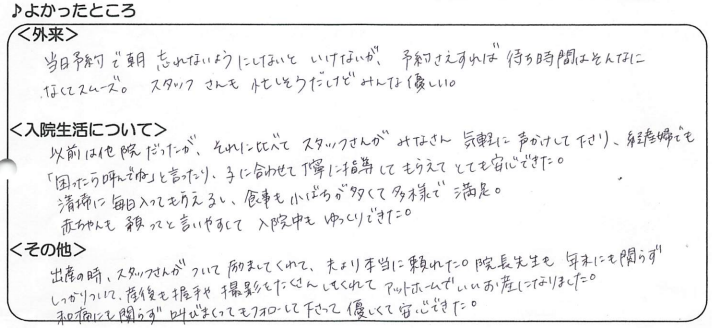 ♪よかったところ
<外来>
当日予約で朝 忘れないようにしないと いけないが、予約さえすれば 待ち時間はそんなに
なくてスムーズ。 スタッフさんも 忙しそうだけど みんな優しい。
<入院生活について>
以前は他院だったが、それに比べて スタッフさんが みなさん 気軽に 声かけして下さり、経産婦でも
「困ったら呼んでね」と言ったり、子に合わせて丁寧に指導して もらえて とても安心できた。
清掃に毎日入ってもらえるし、食事も小ばちが多くて多様で 満足。
赤ちゃんも 預ってと言いやすくて 入院中も ゆっくりできた。
<その他>
出産の時、スタッフさんが ついて 励ましてくれて、夫より本当に頼れた。院長先生も 年末にも関らず
しっかりついて、産後も握手や 撮影をたくさんしてくれて アットホームでいいお産になりました。
和痛にも関らず 叫びまくってもフォローして下さって 優しくて安心できた。